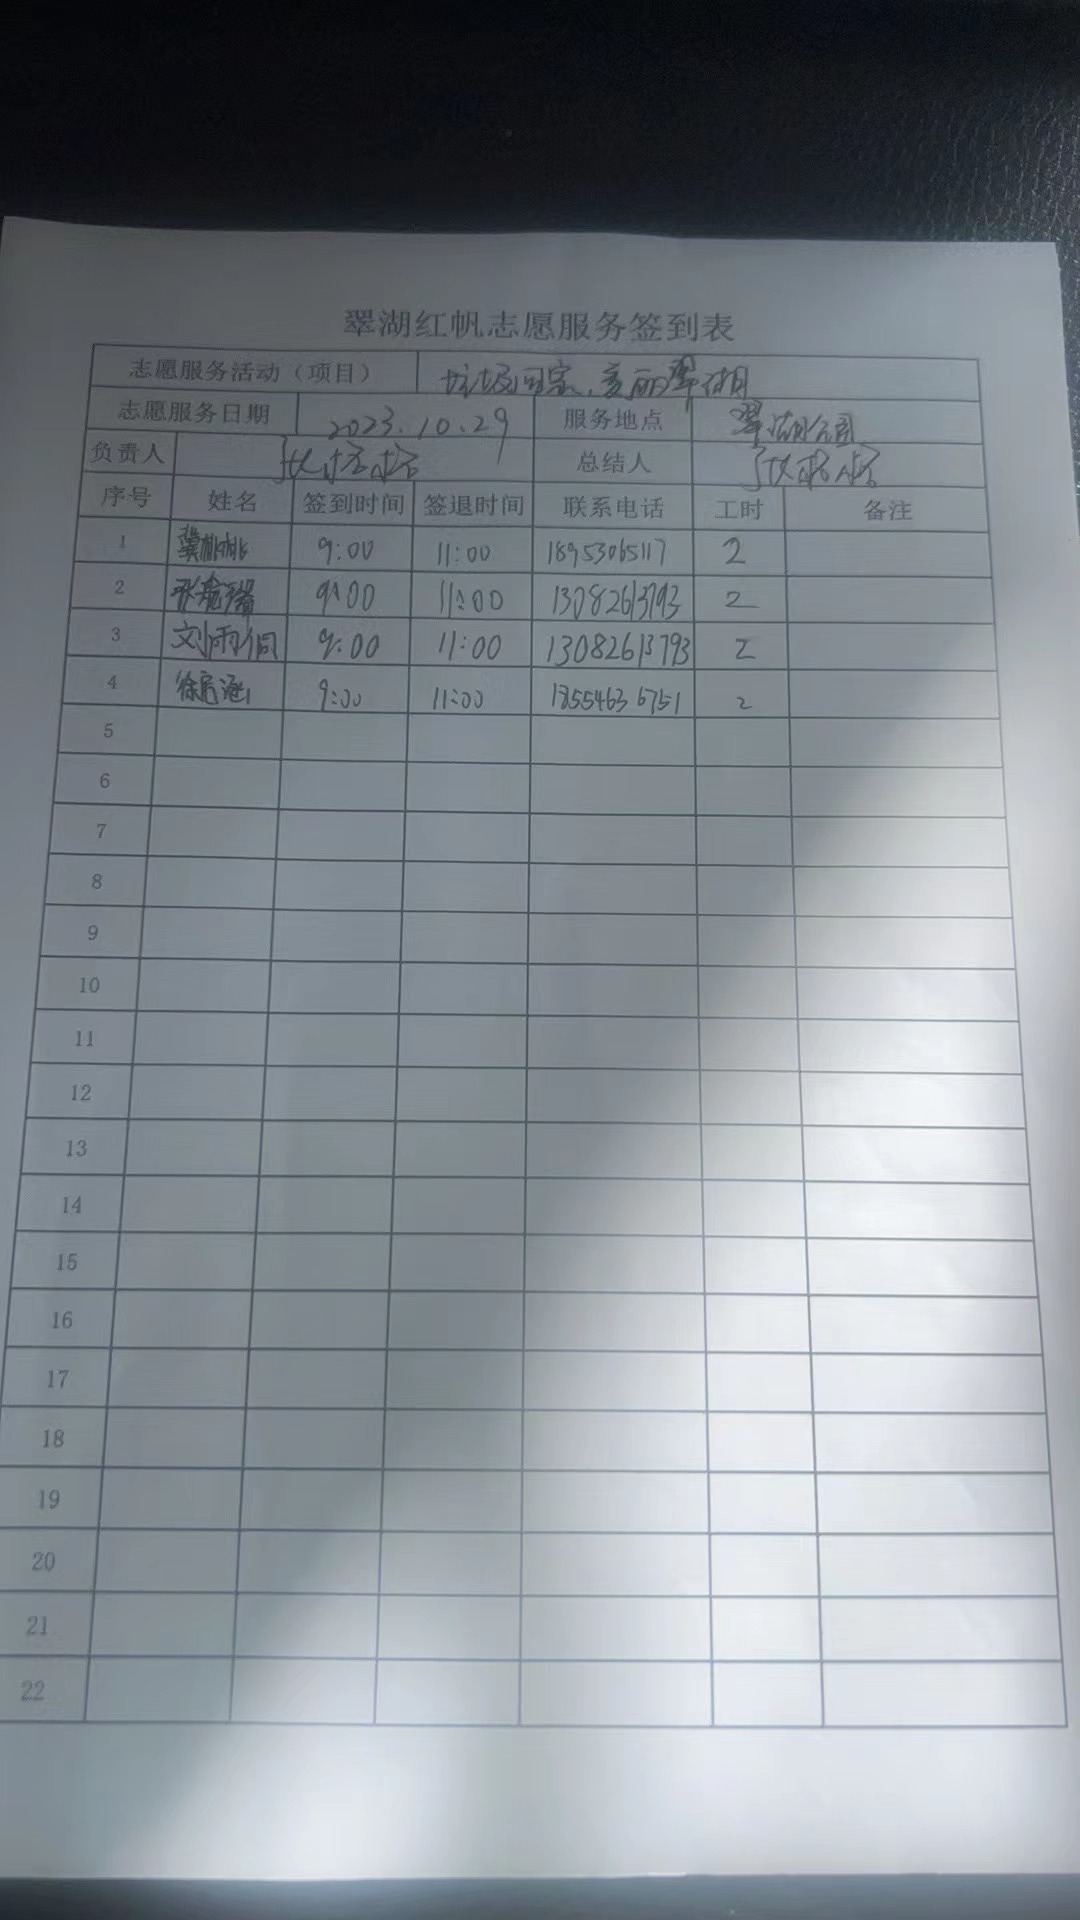 翠湖红帆志愿服务签到表
志愿服务活动（项目） 垃圾回家、美丽翠湖
志愿服务日期 2023.10.29 服务地点 翠湖公园
负责人 总结人
序号 姓名 签到时间 签退时间 联系电话 工时 备注
1 9:00 11:00 18953065117 2
2 9:00 11:00 13082613793 2
3 刘雨桐 9:00 11:00 13082613793 2
4 9:00 11:00 18554636751 2
5
6
7
8
9
10
11
12
13
14
15
16
17
18
19
20
21
22